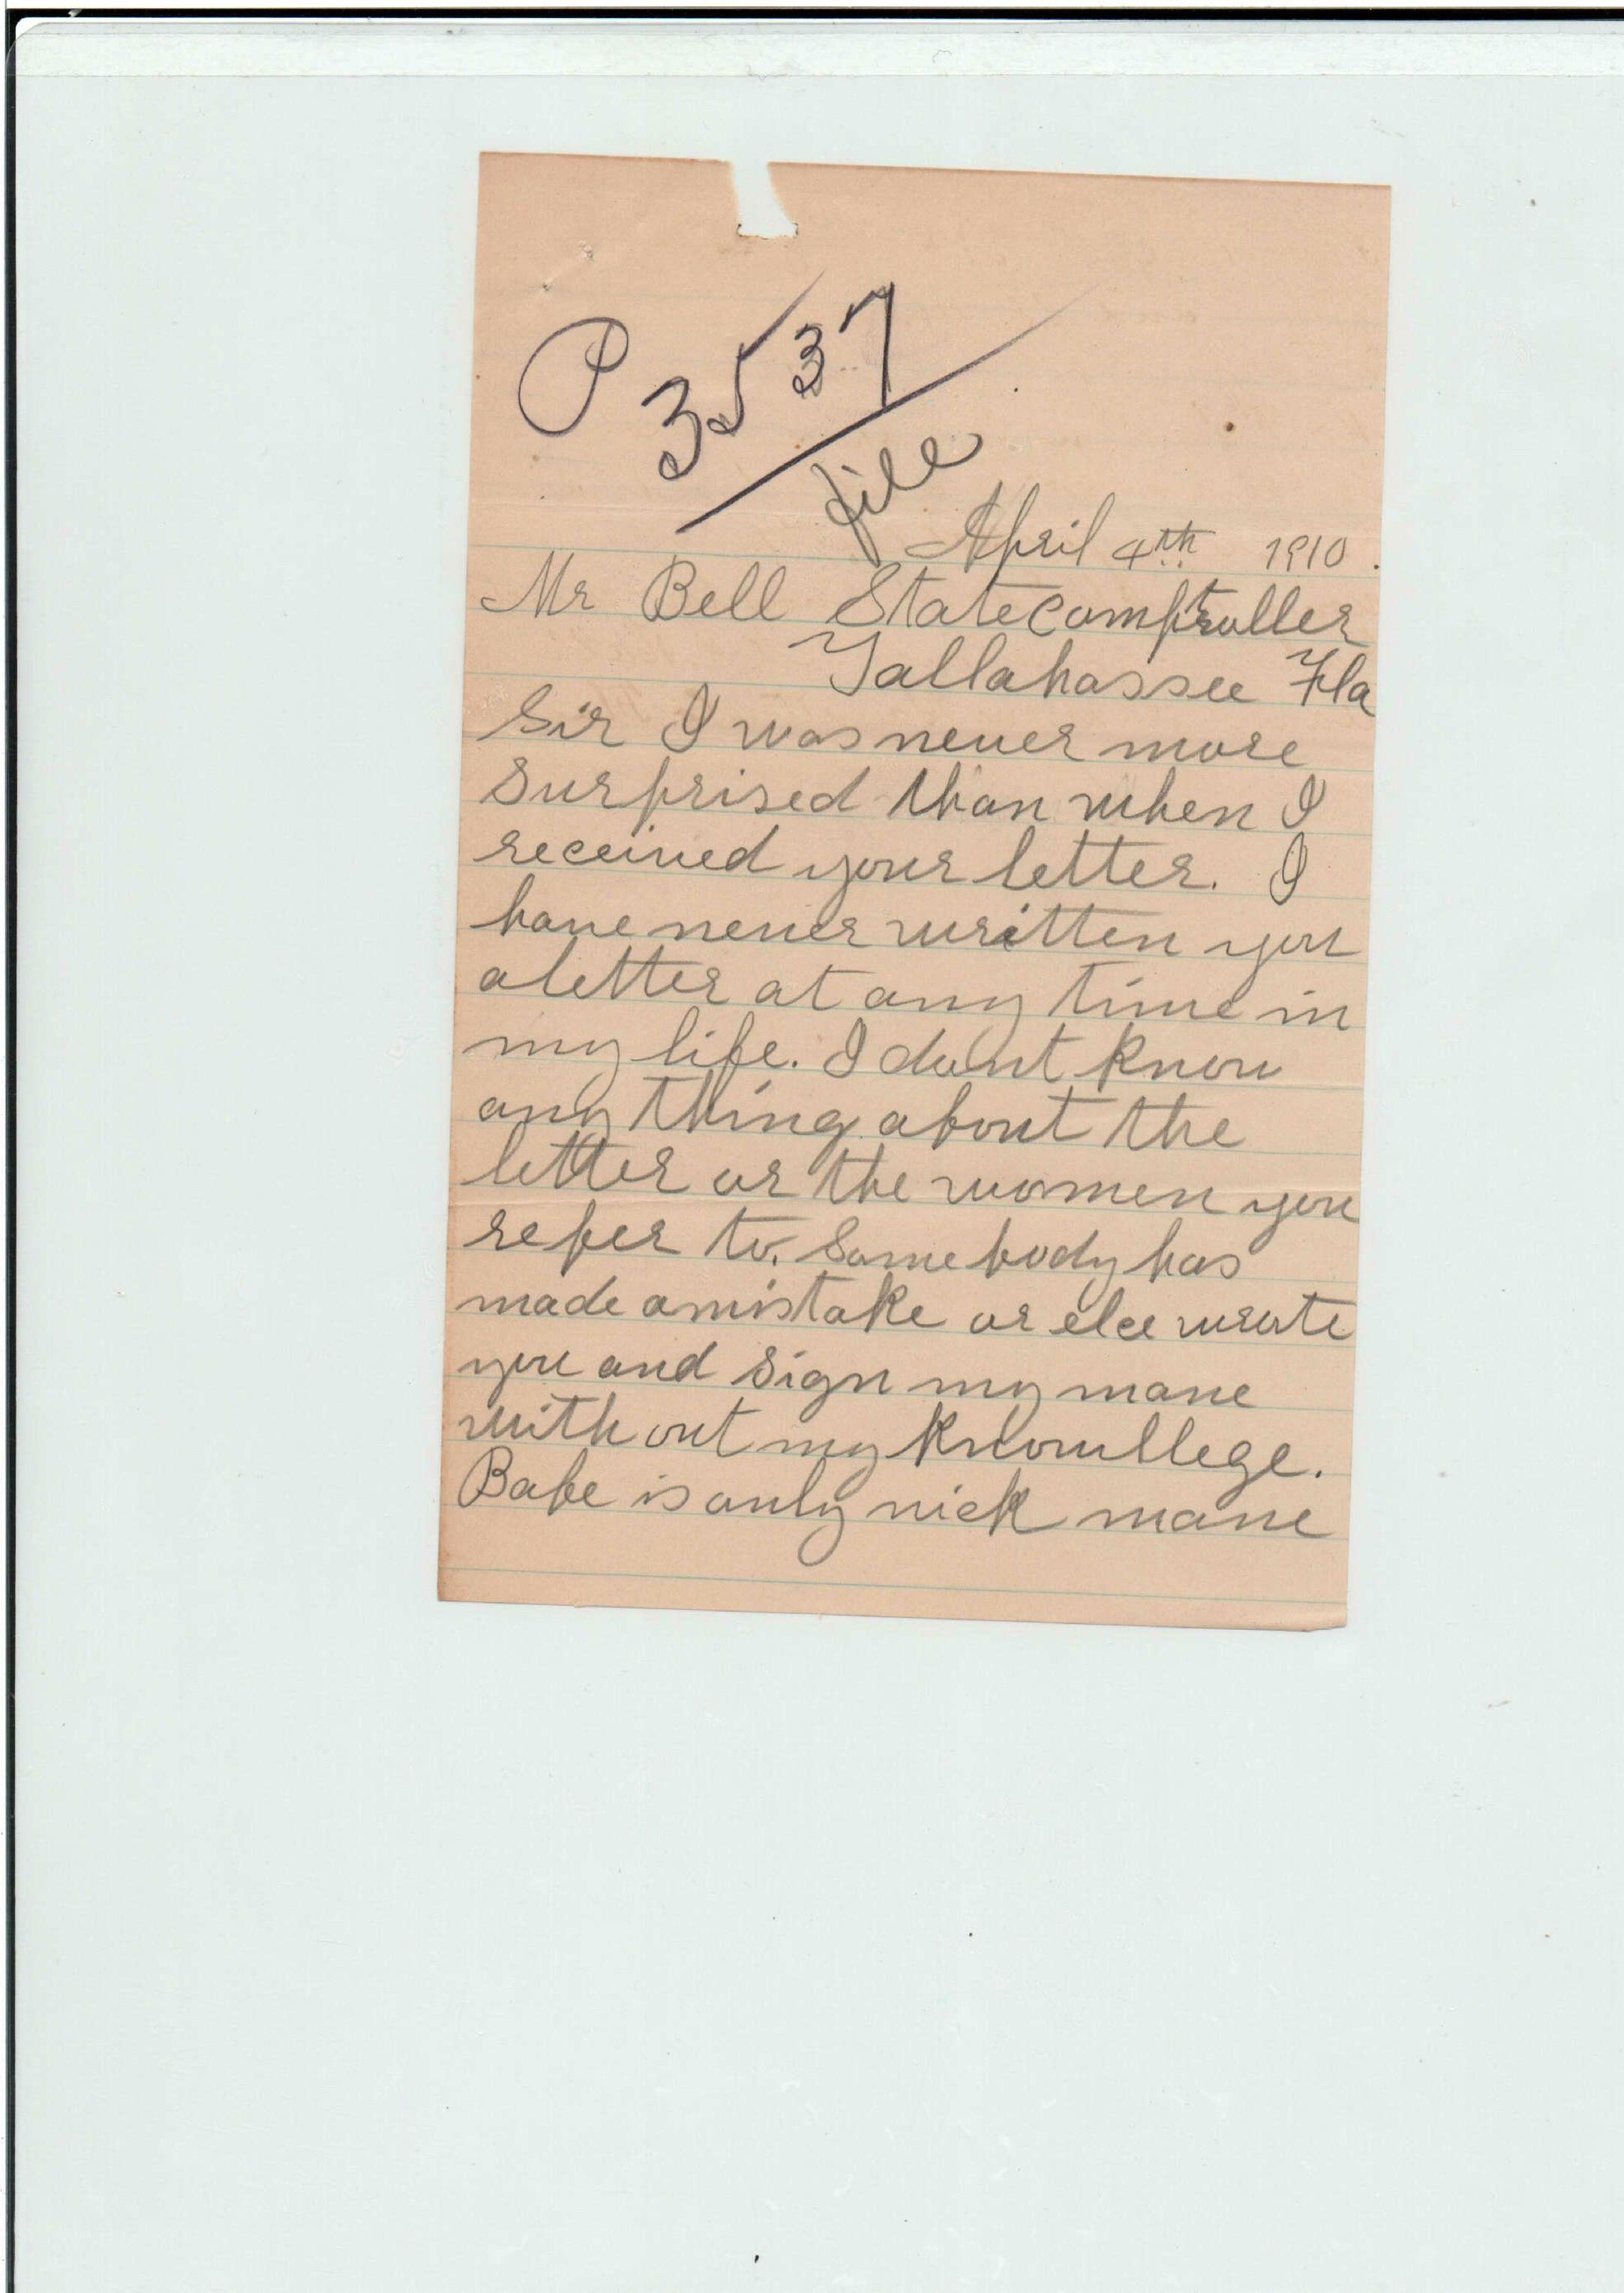 P 3537
file
April 4th 1910.
Mr Bell State comptroller
Tallahassee Fla
Sir I was never more
surprised than when I
received your letter. I
have never written you
a letter at any time in
my life. I dont know
any thing about the
letter or the women you
refer to. Some body has
made a mistake or elce wrote
you and sign my mane
with out my knowllege.
Babe is only nick mane